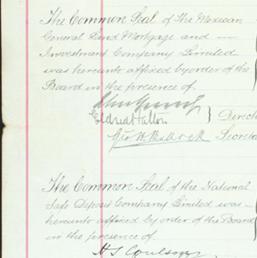 The Common Seal of The Mexican
General Land Mortgage and
Investment Company Limited
was hereunto affixed by order of the
Board in the presence of
Direct
Secreta
The Common Seal of the National
Safe Deposit Company Limited was
hereunto affixed by order of the Board
in the presence of
H S Coulson